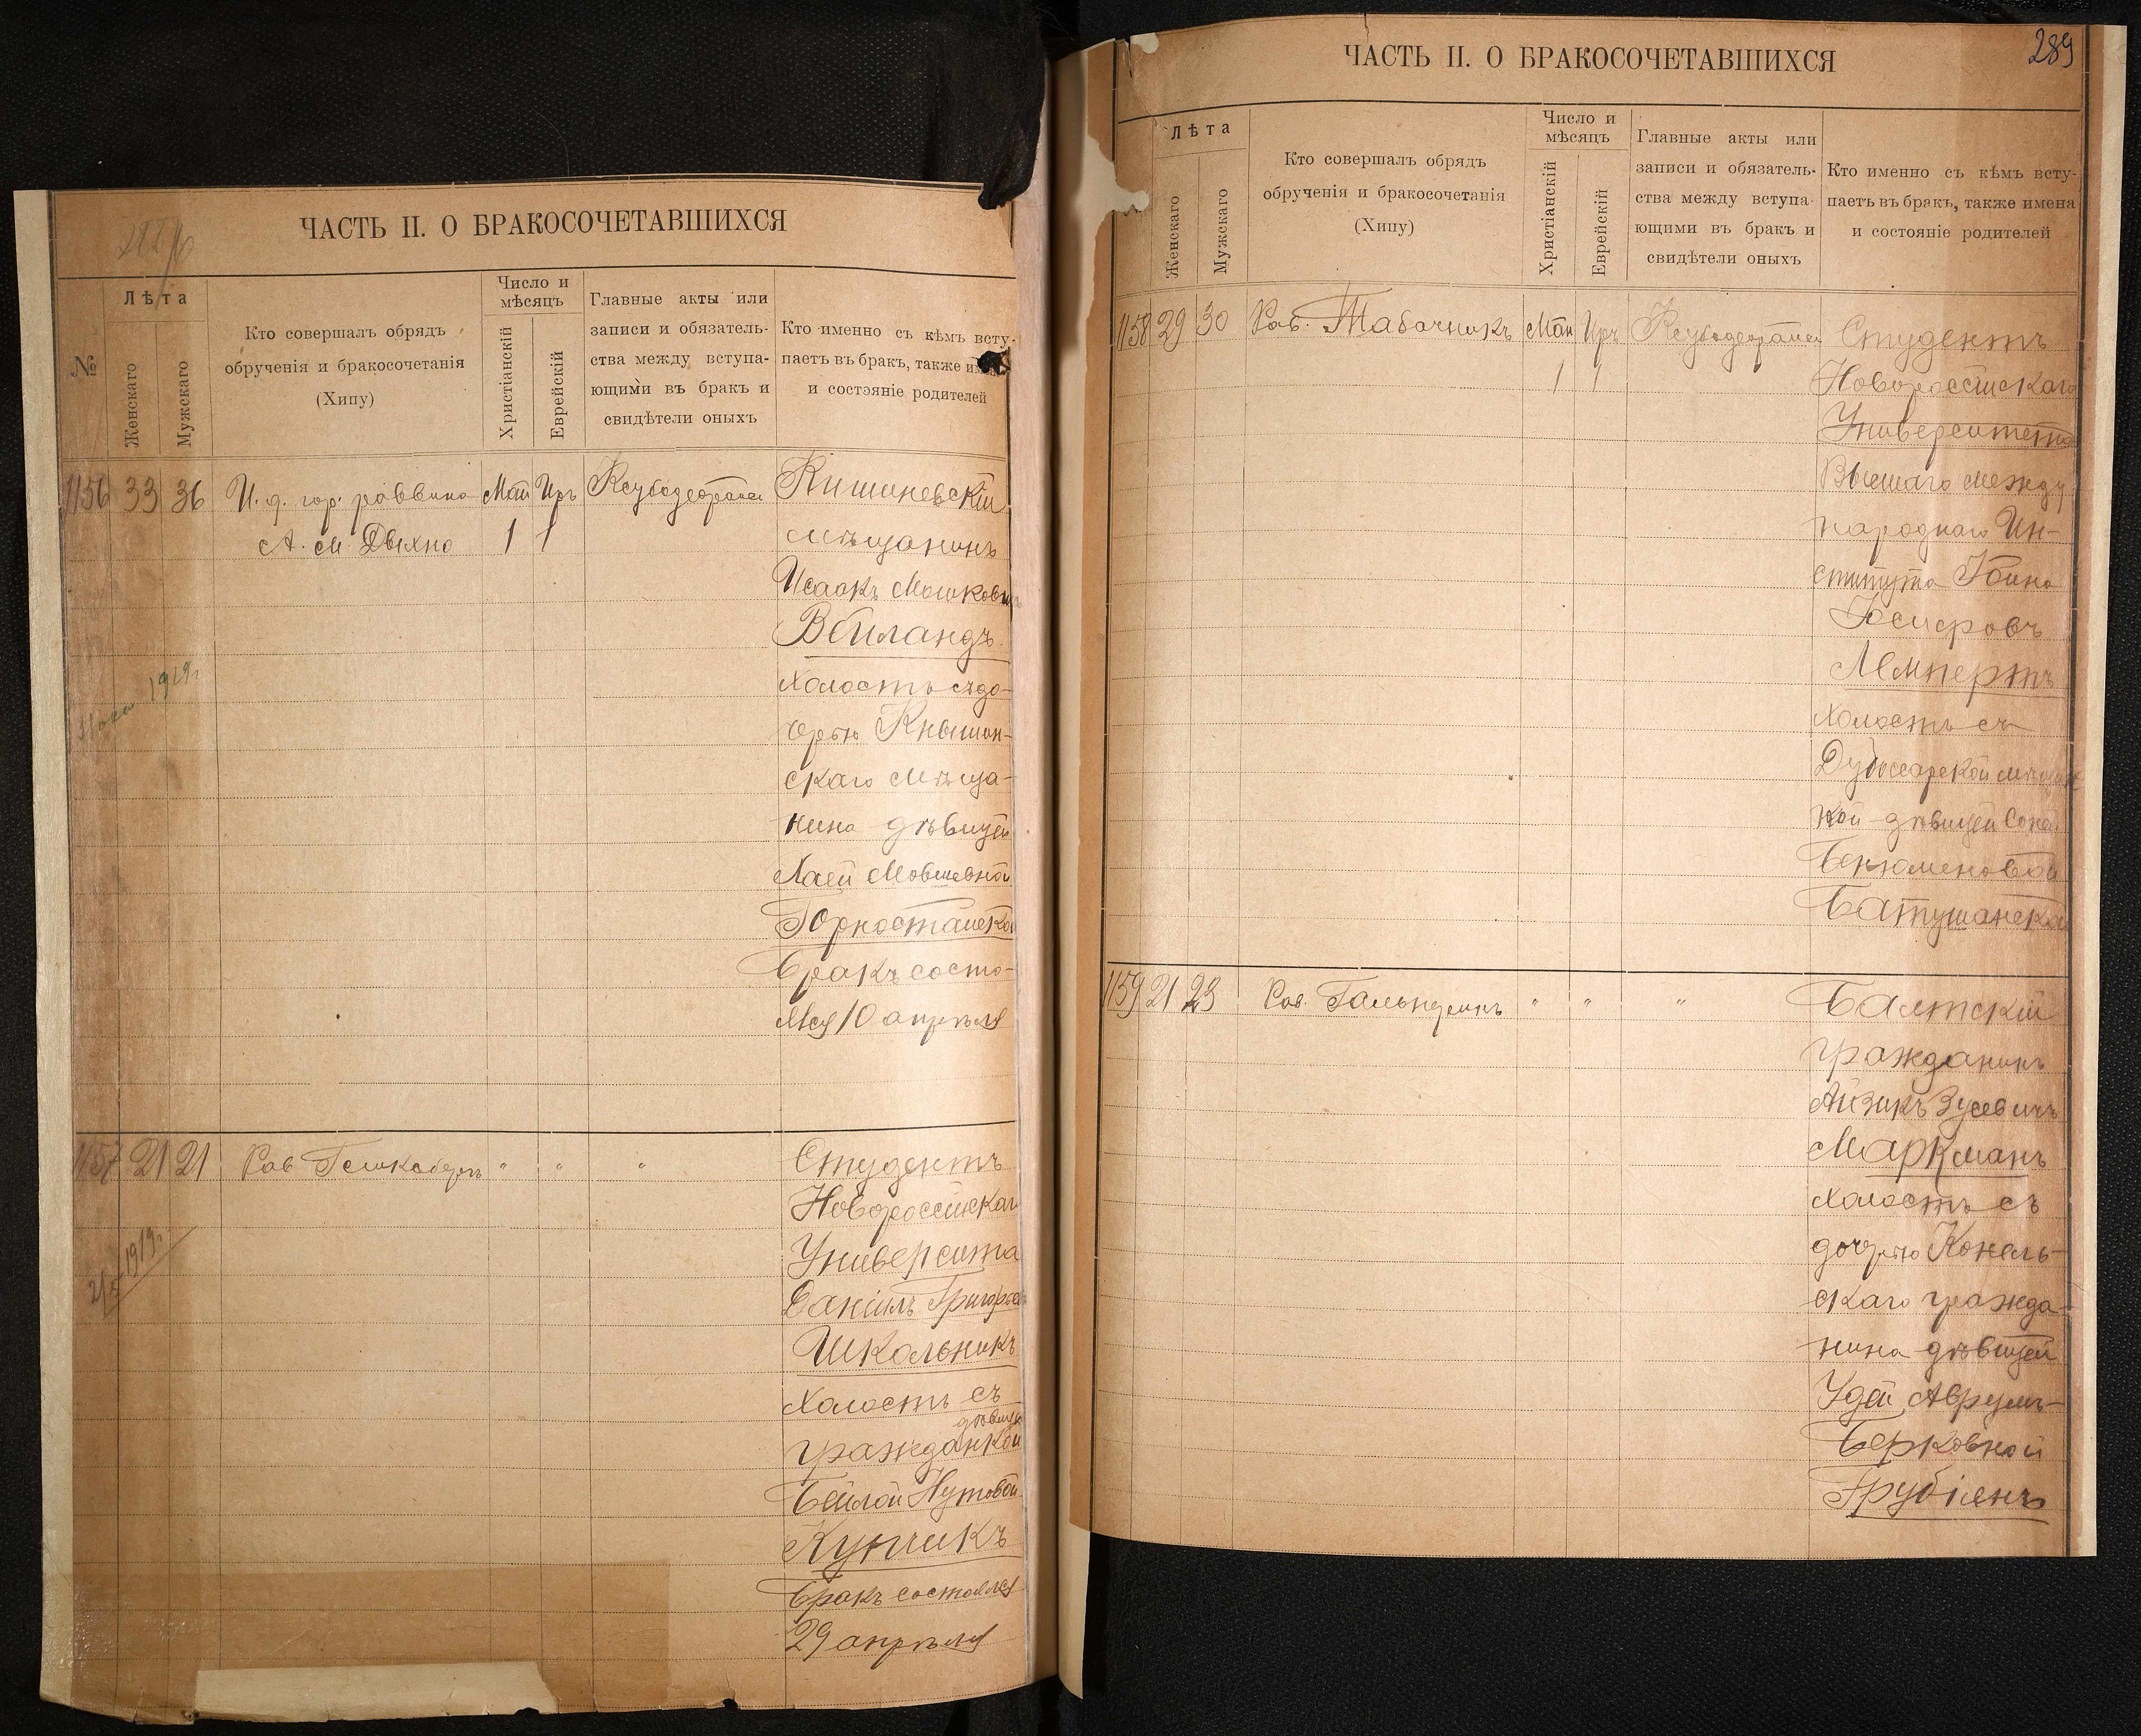 ЧАСТЬ II. О БРАКОСОЧЕТАВШИХСЯ
№
Лѣта
Женскаго
Мужскаго
Кто совершалъ обрядъ
обрученія и бракосочетанія
(Хипу)
Число и
мѣсяцъ
Христіанскій
Еврейскій
Главные акты или
записи и обязатель-
ства между вступа-
ющими въ бракъ и
свидѣтели оныхъ
Кто именно съ кѣмъ всту-
паетъ въ бракъ, также
и состояніе родителей
1156 33 36 И. д. гор. раввина Май Иръ Кишиневскій
А. М. Двихно 1 1 мѣщанинъ
Исаакъ Мошковичъ
Вейландъ
холостъ съ до-
черью Кнышин-
скаго мѣща-
нина дѣвицей
Хаей Мовшевной
Горностайской
Бракъ состо-
ялся 10 апрѣля
1919г
1157 21 21 Рав. " " " Студентъ
Новороссійскаго
Университа
Даніилъ Григорьев
Школьникъ
холостъ съ
дѣвицей
гражданкой
Бейлой Нутовой
Купчикъ
Бракъ состоялся
29 апрѣля
1919г.
289
ЧАСТЬ II. О БРАКОСОЧЕТАВШИХСЯ
Лѣта
Женскаго
Мужскаго
Кто совершалъ обрядъ
обрученія и бракосочетанія
(Хипу)
Число и
мѣсяцъ
Христіанскій
Еврейскій
Главные акты или
записи и обязатель-
ства между вступа-
ющими въ бракъ и
свидѣтели оныхъ
Кто именно съ кѣмъ всту-
паетъ въ бракъ, также имена
и состояніе родителей
1158 29 30 Рав. Табачникъ Май Иръ Студентъ
1 1 Новороссійскаго
Университета
Высшаго между
народнаго Ин-
ститута Іоина
Іосифовъ
Лемпертъ
холостъ съ
Дубоссарской мѣщан
кой дѣвицей Соней
Беньяминовой
Батушанской
1159 21 23 Рав. Гальперинъ " " " Балтскій
гражданинъ
Айзикъ Зусевичъ
Маркманъ
холостъ съ
дочерью Конель-
скаго гражда-
нина дѣвицей
Удей Аврумъ-
Берковной
Грубіянъ